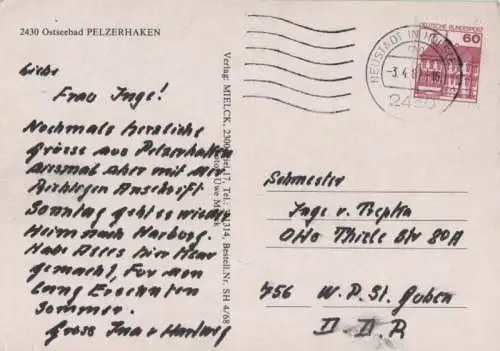 2430 Ostseebad PELZERHAKEN
Liebe
Frau Inge!
Nochmals herzliche
Grüsse aus Pelzerhaken
diesmal aber mit der
Richtigen Anschrift
Sonntag geht es wieder
Heim nach Harburg.
Habe Alles hier
gemacht, Für
Sommer.
Gross Ina v Hartweg
Verlag: MIELCK, 2300 Kiel 17, Tel. 314, Bestell.Nr. SH 4/68
Uwe
NEUSTADT IN HOLST
-3.4.8
2430
DEUTSCHE BUNDESPOST
60
Schwester
Inge v. Trepka
Otto Thiele Str 80A
756 W. P. St. Guben
D D R